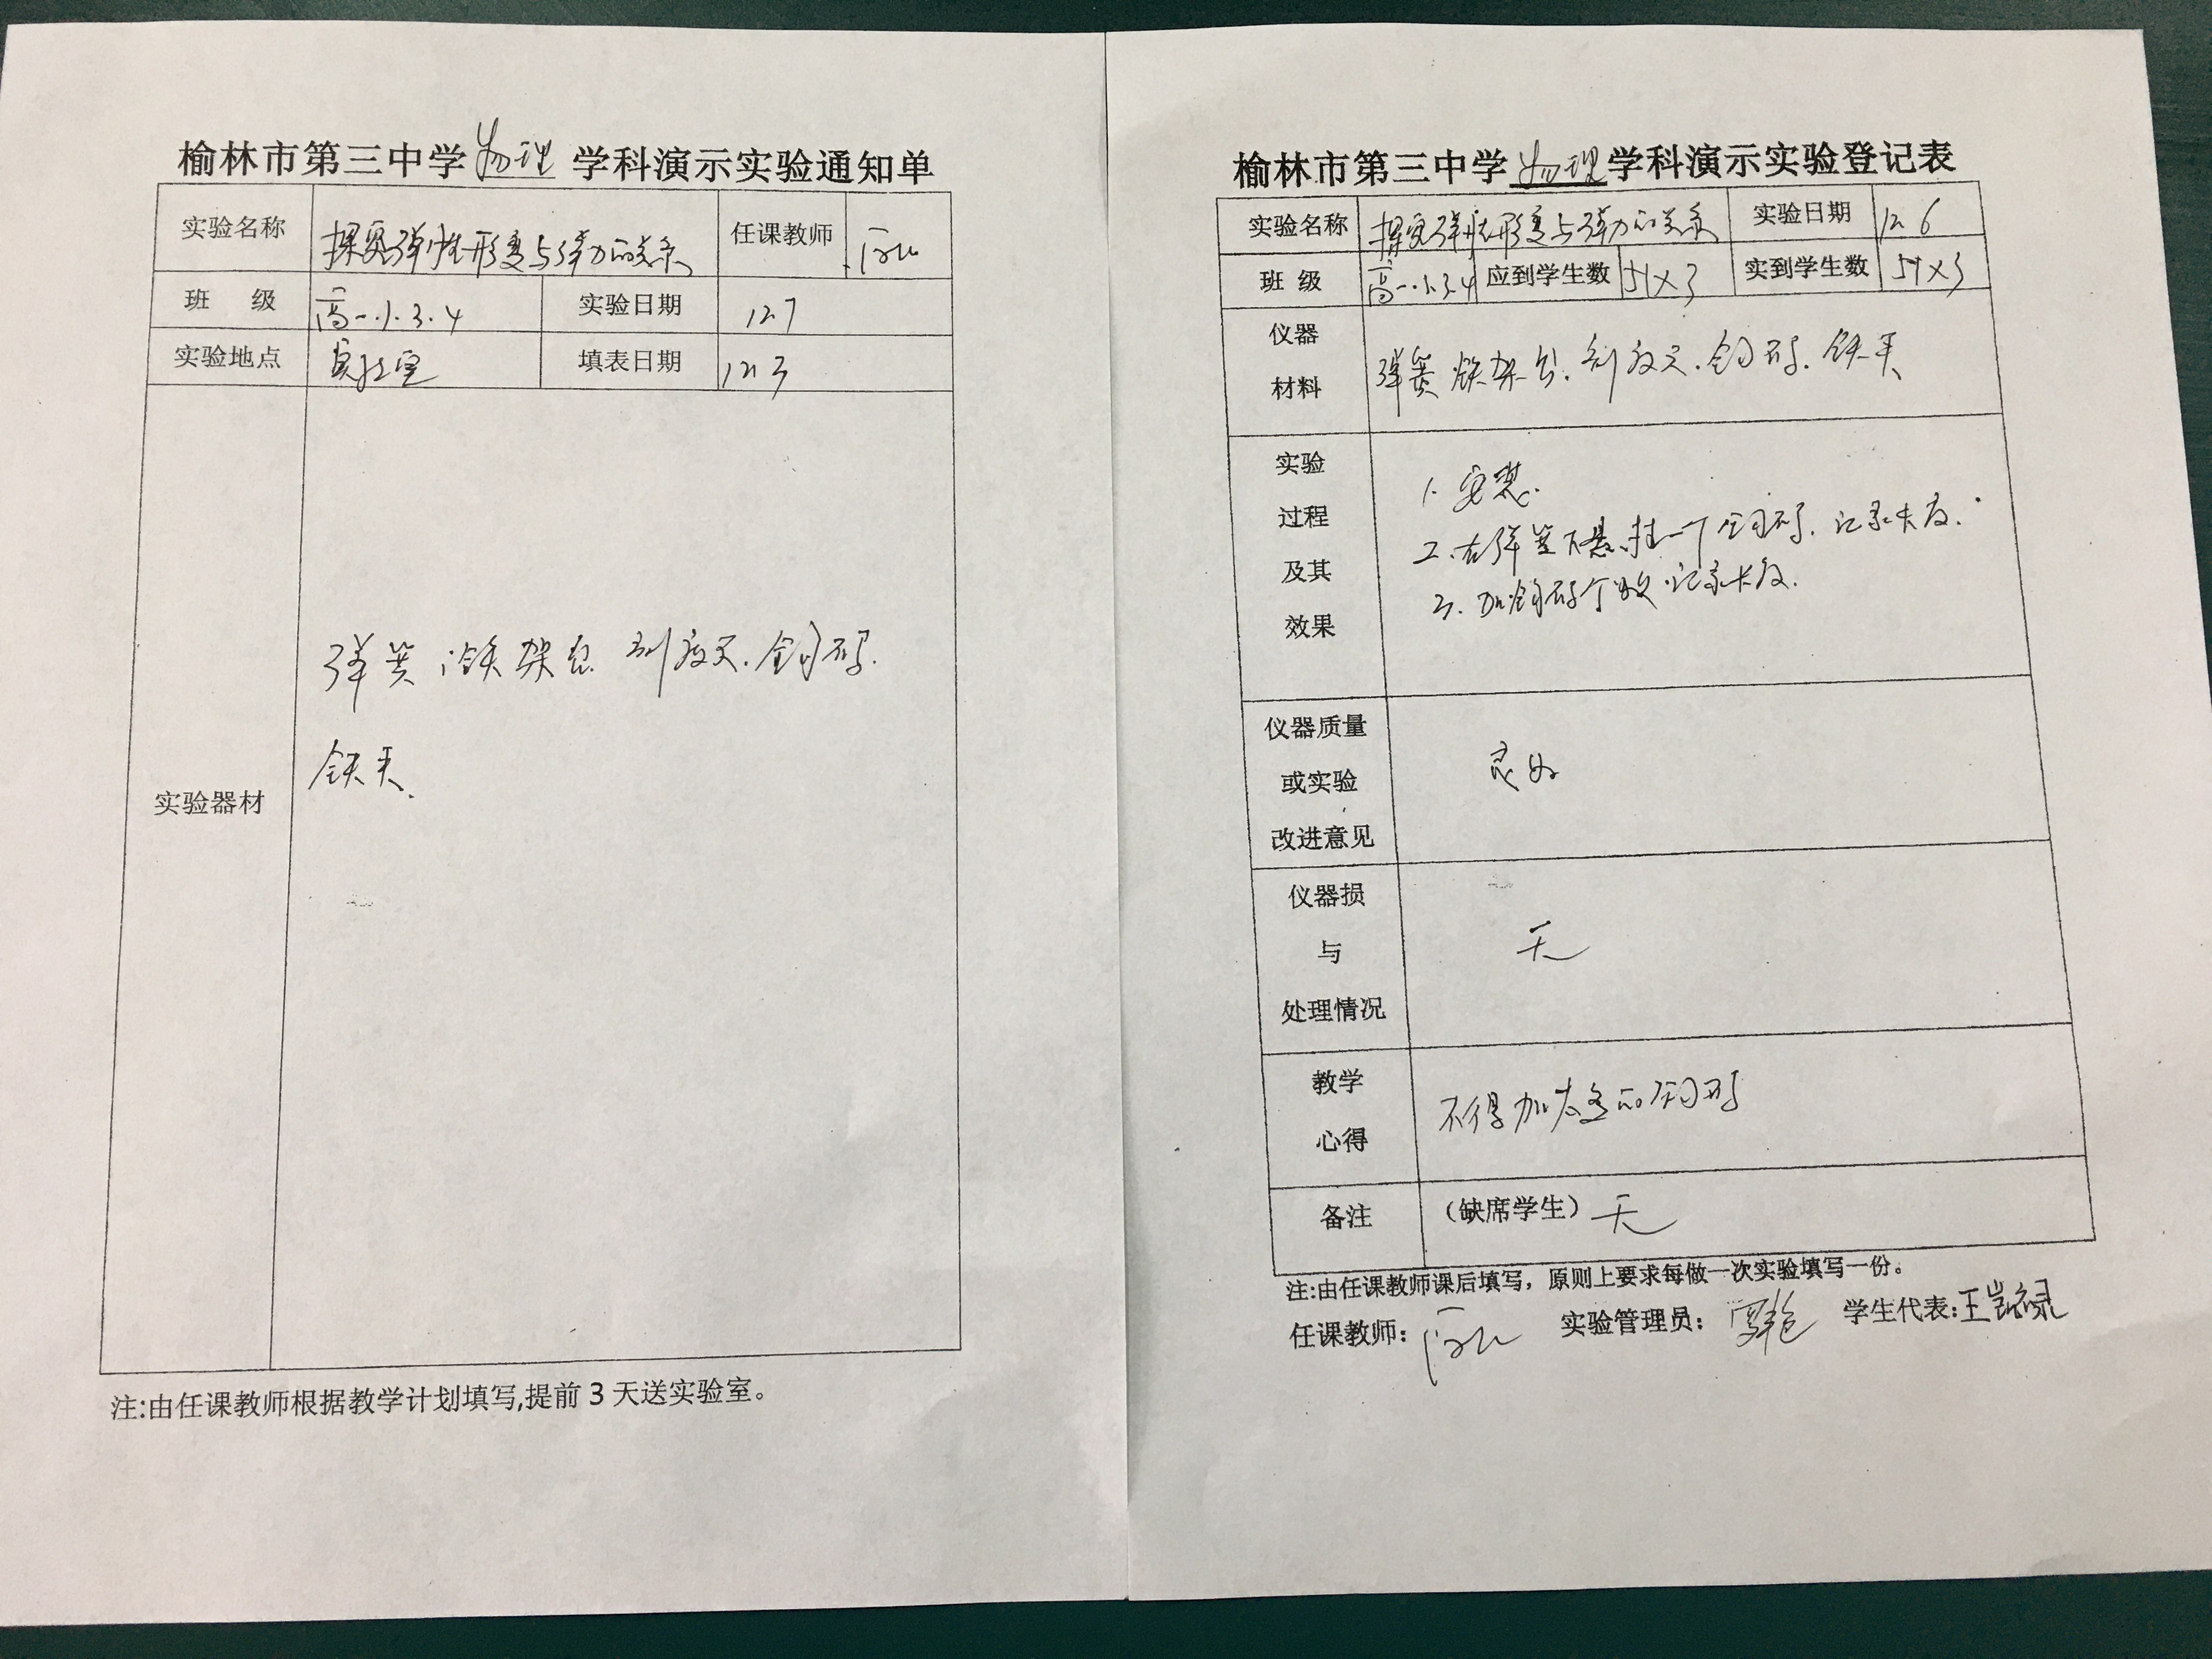 榆林市第三中学物理学科演示实验通知单
实验名称 探究弹性形变与弹力的关系 任课教师
班 级 高一.1.3.4 实验日期 12.7
实验地点 实验室 填表日期 12.3
实验器材
弹簧 铁架台 刻度尺.钩码.
铁夹.
注:由任课教师根据教学计划填写,提前3天送实验室。
榆林市第三中学物理学科演示实验登记表
实验名称 探究弹性形变与弹力的关系 实验日期 12.6
班 级 高一.1.3.4 应到学生数 51×3 实到学生数 51×3
仪器
材料
弹簧 铁架台.刻度尺.钩码.铁夹
实验
过程
及其
效果
1.安装.
2.在弹簧下悬挂一个钩码.记录长度.
3.加钩码个数.记录长度.
仪器质量
或实验
改进意见
良好
仪器损
与
处理情况
无
教学
心得
不得加太多的钩码
备注 (缺席学生) 无
注:由任课教师课后填写，原则上要求每做一次实验填写一份。
任课教师: 实验管理员: 学生代表:王